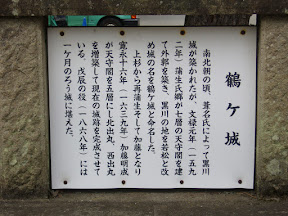 鶴ケ城
南北朝の頃、葦名氏によって黒川
城が築かれたが、文禄元年（一五九
二年）蒲生氏郷が七層の天守閣を建
て外郭を築き、黒川の地を若松と改
め城の名を鶴ケ城と命名した。
上杉から再蒲生そして加藤となり
寛永十六年（一六三九年）加藤明成
が天守閣を五層にし北出丸、西出丸
を増築して現在の城跡を完成させて
いる。戊辰の役（一八六八年）には
一ケ月のろう城に堪えた。